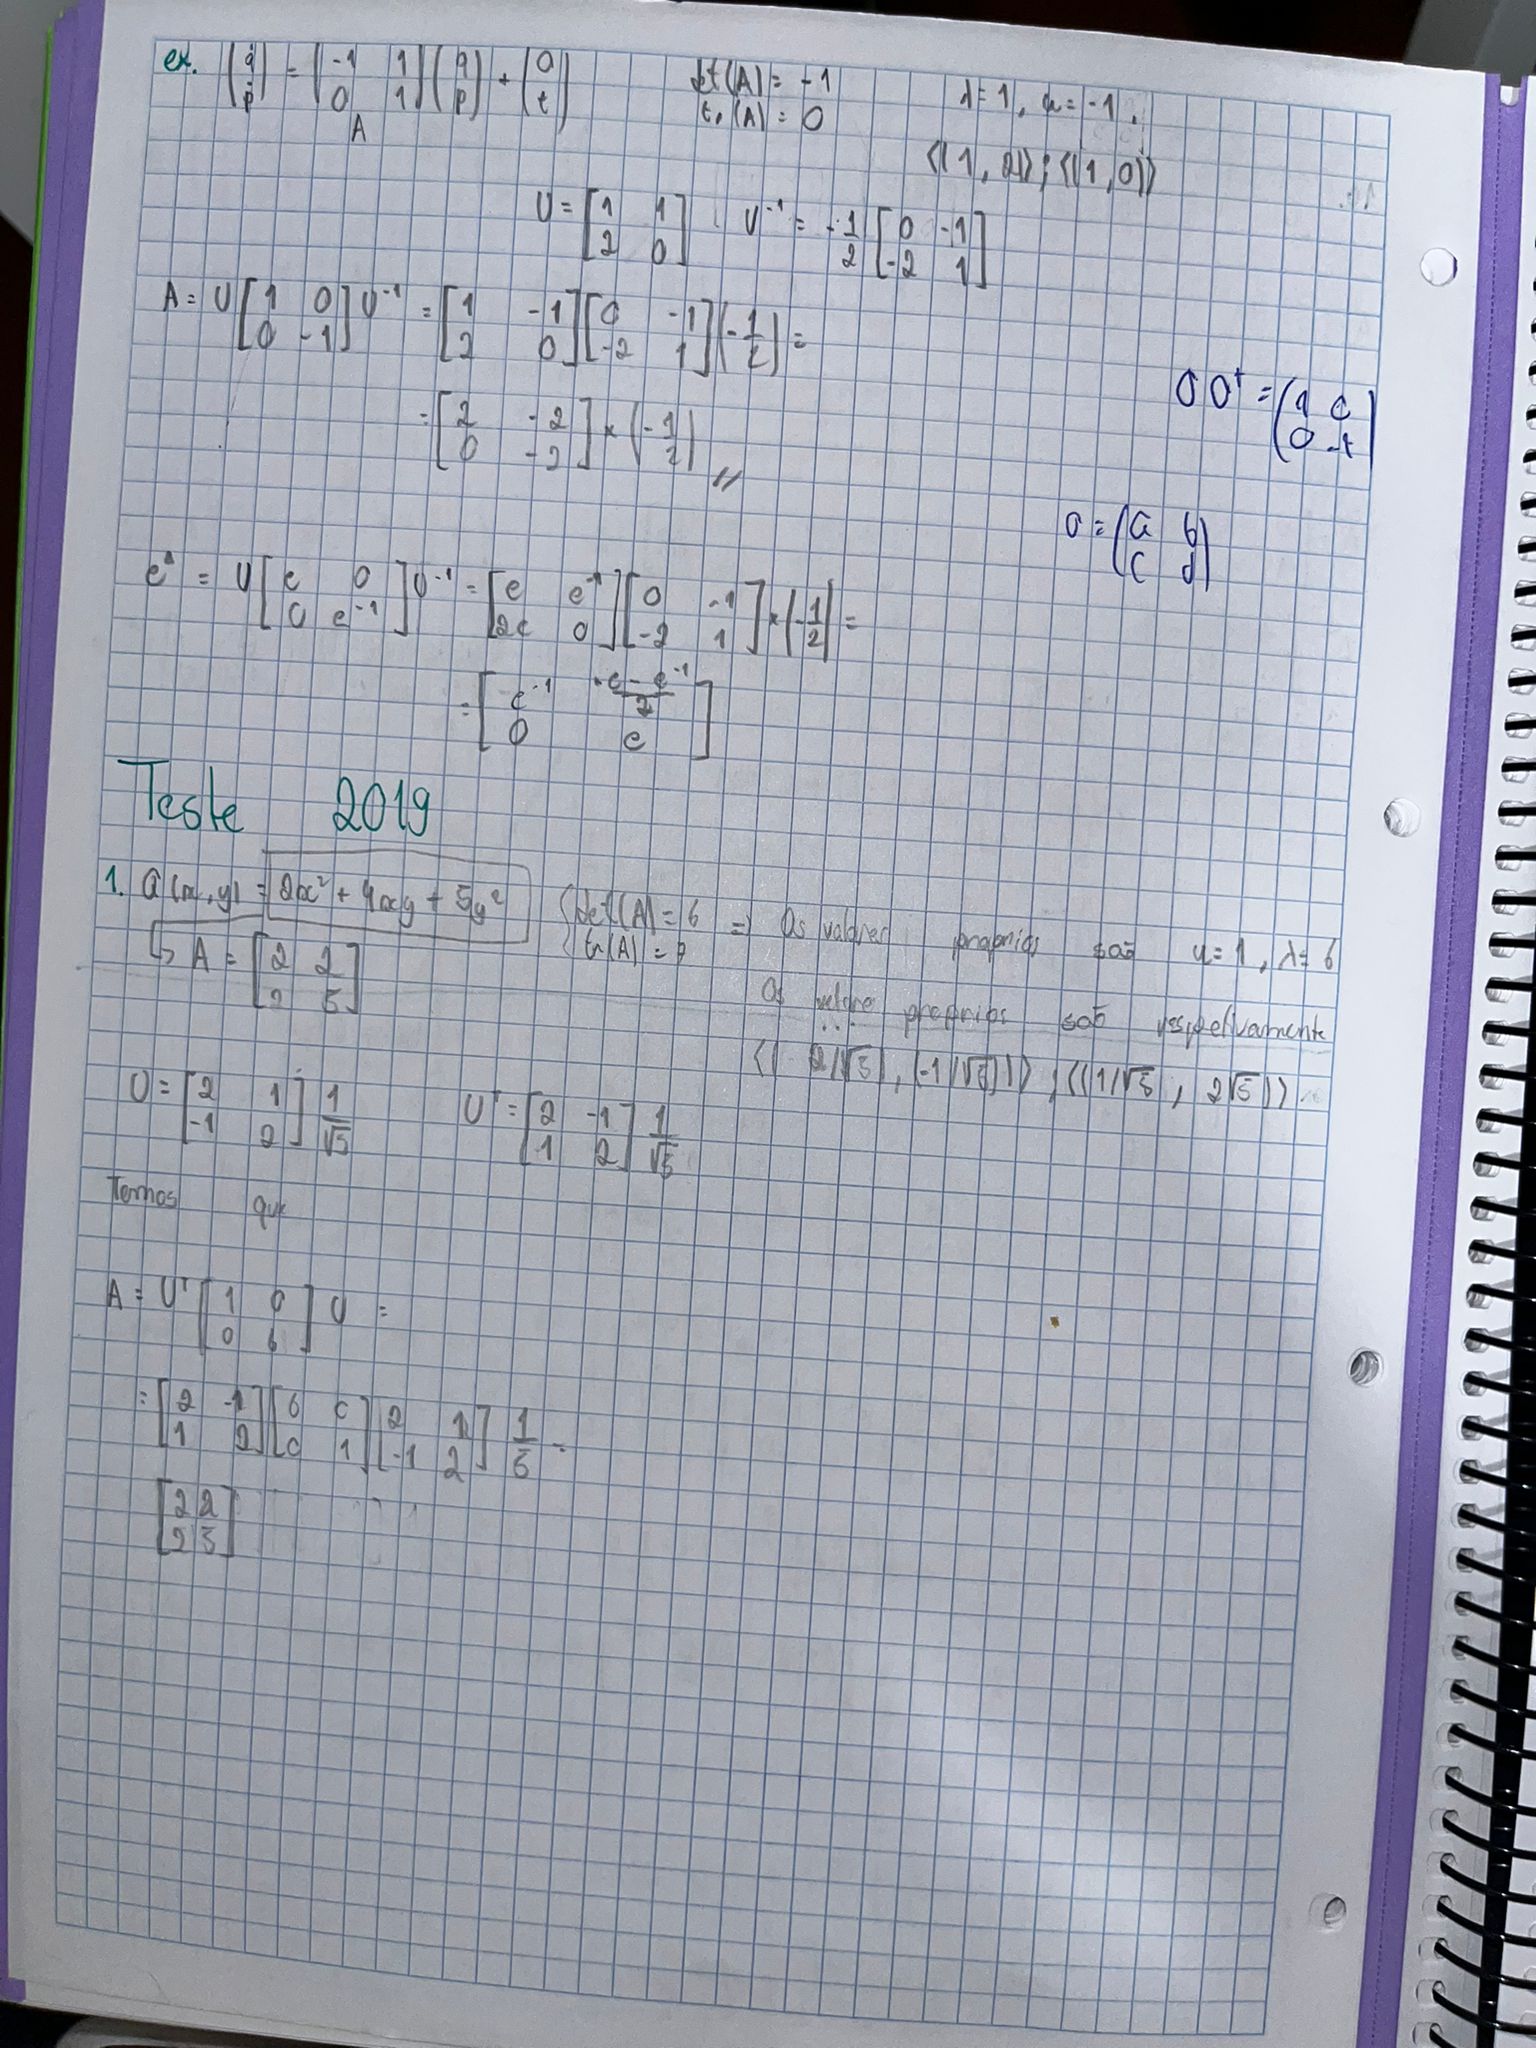 ex. (q̇ ṗ) = (-1 1 0 1)(q p) + (0 t) det(A) = -1 λ=1, μ=-1.
A tr(A) = 0
⟨(1, 2)⟩; ⟨(1, 0)⟩
U = [1 1 2 0] U⁻¹ = -1/2 [0 -1 -2 1]
A = U [1 0 0 -1] U⁻¹ = [1 -1 2 0] [0 -1 -2 1] (-1/2) =
= [2 -2 0 -2] × (-1/2) //
O Oᵗ =
O = (a b c d)
eᴬ = U [e 0 0 e⁻¹] U⁻¹ = [e e⁻¹ 2e 0] [0 -1 -2 1] × (-1/2) =
= [e⁻¹ e - e⁻¹/2 0 e]
Teste 2019
1. a(x,y) = 2x² + 4xy + 5y² { det(A) = 6 ⇒ Os valores proprios são μ=1, λ=6
↳ A = [2 2 2 5] tr(A) =
Os proprios são respetivamente
⟨(2/√5), (-1/√5)⟩; ⟨(1/√5, 2√5)⟩
U = [2 1 -1 2] 1/√5 Uᵀ = [2 -1 1 2] 1/√5
Temos que
A = Uᵀ [1 0 0 6] U =
= [2 -1 1 2] [6 0 0 1] [2 1 -1 2] 1/5 =
[2 2 2 5]